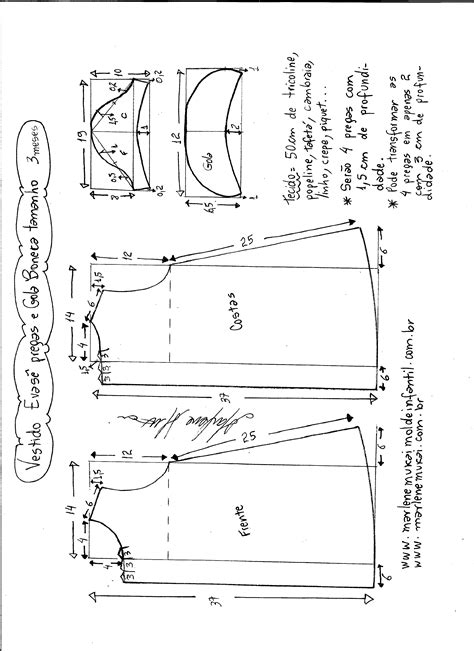 Vestido Evasê pregas e Gola Boneca tamanho 3 meses
19
10
0,2
4,5
8
0,5
0,2
12
6,5
Gola
1
1
Tecido= 50cm de tricoline,
popeline, tafetá, cambraia,
linho, crepe, piquet...
* Serão 4 pregas com
1,5 cm de profundi-
dade.
* Pode transformar as
4 pregas em apenas 2
com 3 cm de profun-
didade.
14
12
25
6
1,5
4
1,5
3
3
3
Costas
6
6
37
14
12
25
6
1,5
4
4
3
3
3
Frente
6
6
37
www.marlenemukaimoldeinfantil.com.br
www.marlenemukai.com.br